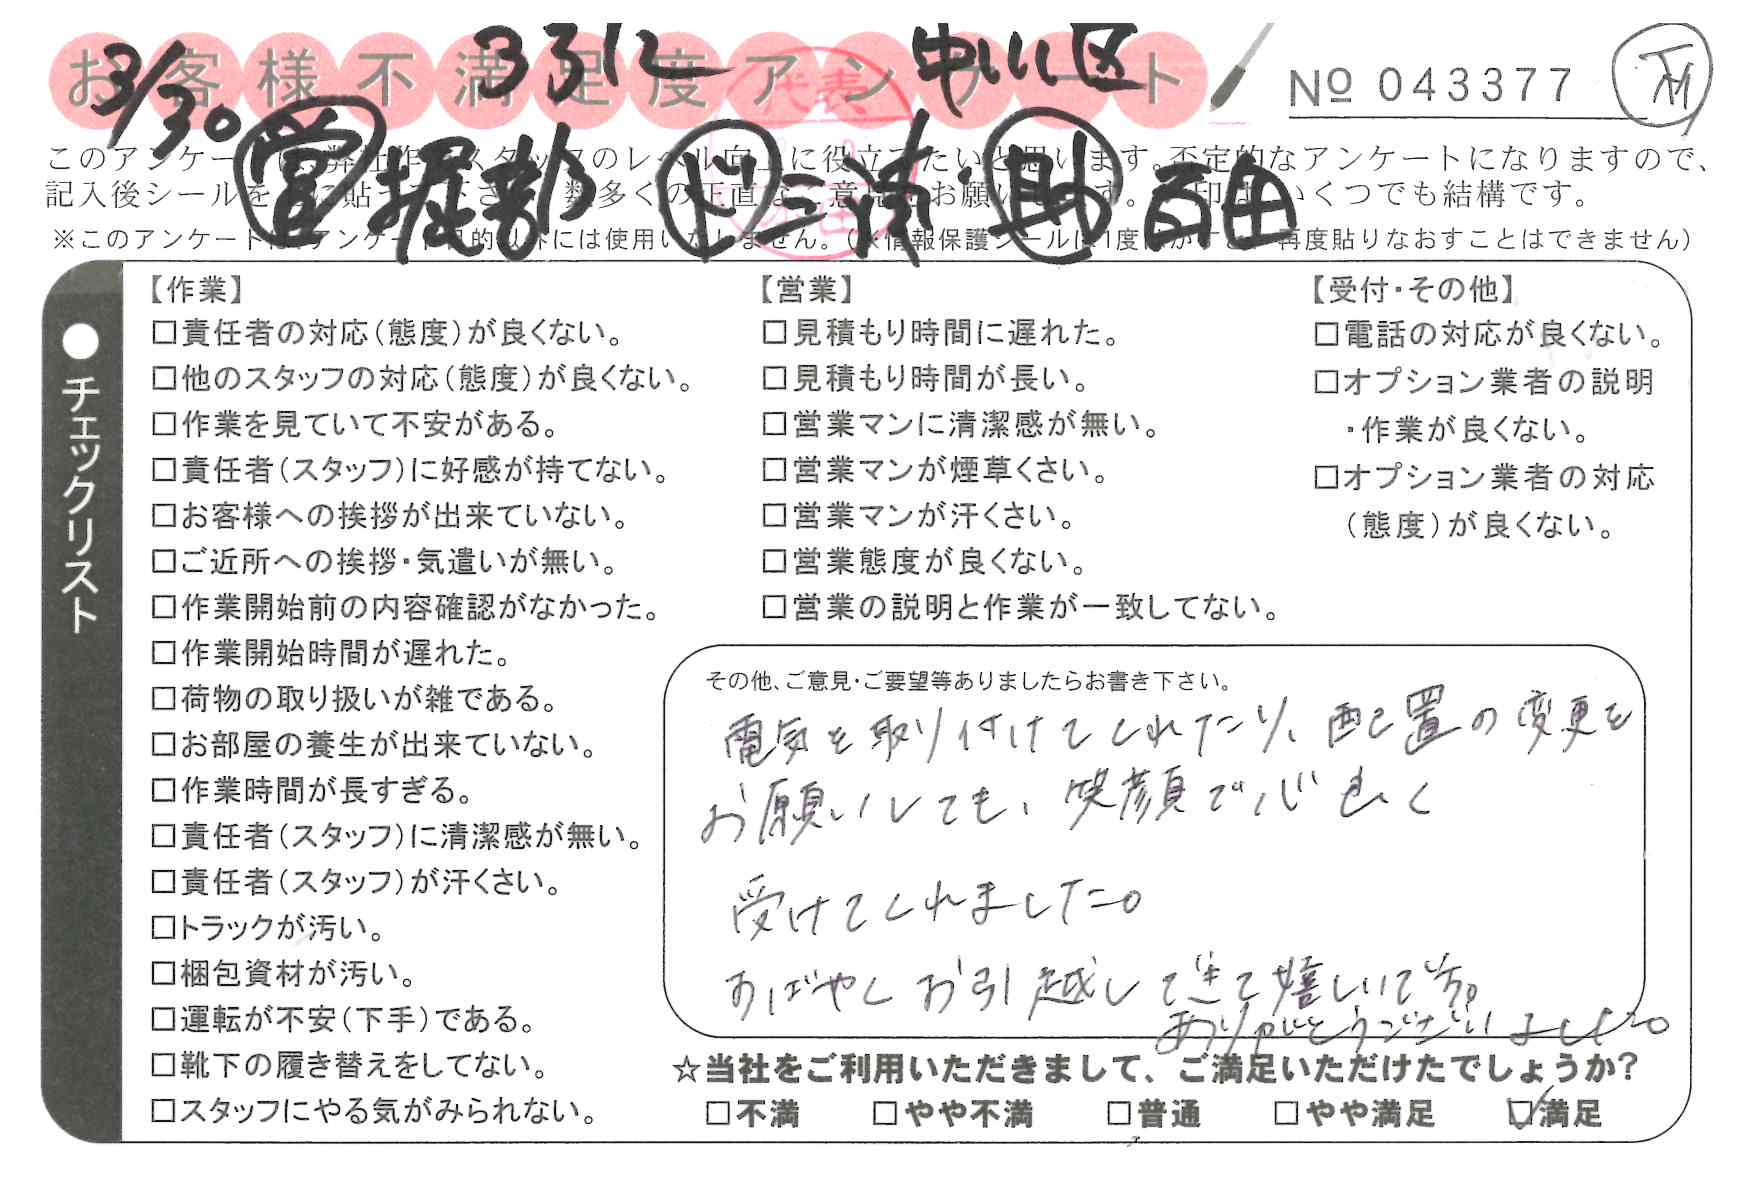 お客様不満足度アンケート
3/30 3312 中川区
№ 043377
営 堀部 ド 三浦・助 吉田
このアンケートは、弊社作業スタッフのレベル向上に役立てたいと思います。否定的なアンケートになりますので、
記入後シールを上に貼って下さい。数多くの正直なご意見をお願いします。
印は、いくつでも結構です。
※このアンケートは、アンケート目的以外には使用いたしません。(※情報保護シールは1度はがすと、再度貼りなおすことはできません)
●チェックリスト
【作業】
□責任者の対応(態度)が良くない。
□他のスタッフの対応(態度)が良くない。
□作業を見ていて不安がある。
□責任者(スタッフ)に好感が持てない。
□お客様への挨拶が出来ていない。
□ご近所への挨拶・気遣いが無い。
□作業開始前の内容確認がなかった。
□作業開始時間が遅れた。
□荷物の取り扱いが雑である。
□お部屋の養生が出来ていない。
□作業時間が長すぎる。
□責任者(スタッフ)に清潔感が無い。
□責任者(スタッフ)が汗くさい。
□トラックが汚い。
□梱包資材が汚い。
□運転が不安(下手)である。
□靴下の履き替えをしてない。
□スタッフにやる気がみられない。
【営業】
□見積もり時間に遅れた。
□見積もり時間が長い。
□営業マンに清潔感が無い。
□営業マンが煙草くさい。
□営業マンが汗くさい。
□営業態度が良くない。
□営業の説明と作業が一致してない。
【受付・その他】
□電話の対応が良くない。
□オプション業者の説明
・作業が良くない。
□オプション業者の対応
(態度)が良くない。
その他、ご意見・ご要望等ありましたらお書き下さい。
電気を取り付けてくれたり、配置の変更を
お願いしても、笑顔で心良く
受けてくれました。
すばやくお引越しできて嬉しいです。
ありがとうございました。
☆当社をご利用いただきまして、ご満足いただけたでしょうか?
□不満 □やや不満 □普通 □やや満足 ☑満足